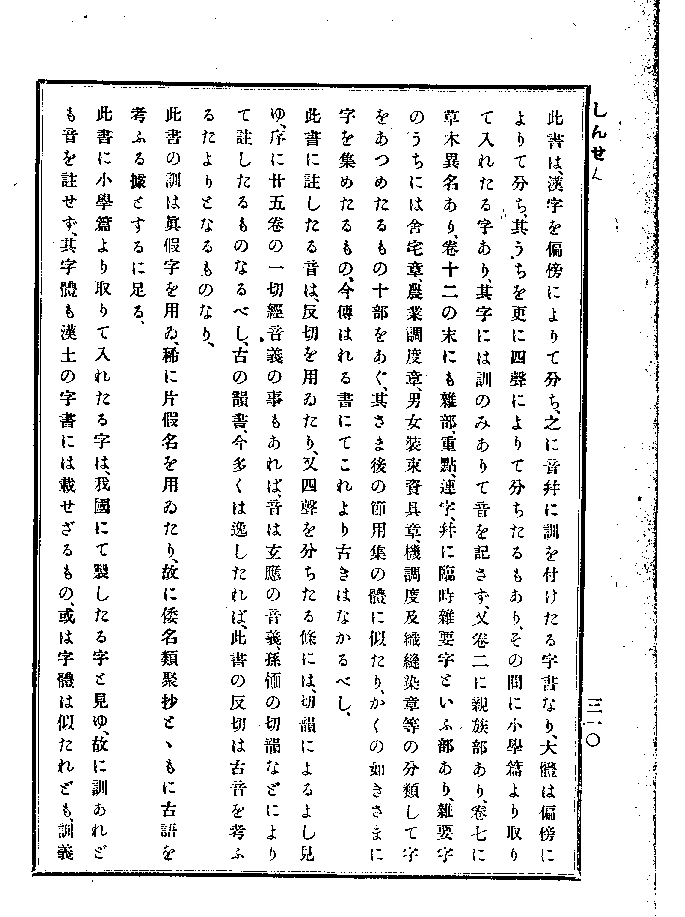 しんせん
三一〇
此書は、漢字を偏傍によりて分ち、之に音幷に訓を付けたる字書なり、大體は偏傍に
よりて分ち、其うちを更に四聲によりて分ちたるもあり、その間に小學篇より取り
て入れたる字あり、其字には訓のみありて音を記さず、又卷二に親族部あり、卷七に
草木異名あり、卷十二の末にも雜部、重點、連字、幷に臨時雜要字といふ部あり、雜要字
のうちには舍宅章、農業調度章、男女裝束資具章、機調度及織縫染章等の分類して字
をあつめたるもの十部をあぐ、其さま後の節用集の體に似たり、かくの如きさまに
字を集めたるもの、今傳はれる書にてこれより古きはなかるべし、
此書に註したる音は、反切を用ゐたり、又四聲を分ちたる條には、切韻によるよし見
ゆ、序に廿五卷の一切經音義の事もあれば、音は玄應の音義、孫愐の切韻などにより
て註したるものなるべし、古の韻書、今多くは逸したれば、此書の反切は古音を考ふ
るたよりとなるものなり、
此書の訓は眞假字を用ゐ、稀に片假名を用ゐたり、故に倭名類聚抄とゝもに古語を
考ふる據とするに足る、
此書に小學篇より取りて入れたる字は、我國にて製したる字と見ゆ、故に訓あれど
も音を註せず、其字體も漢土の字書には載せざるもの、或は字體は似たれども、訓義